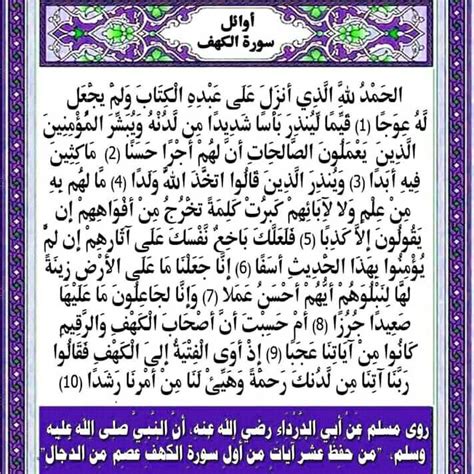 أوائل
سورة الكهف
الحَمْدُ للهَِ الَّذِي أَنزَلَ عَلَى عَبْدِهِ الْكِتَابَ وَلَمْ يَجْعَل
لَّهُ عِوَجًا (1) قَيِّمًا لِّيُنذِرَ بَأْسًا شَدِيدًا مِن لَّدُنْهُ وَيُبَشِّرَ الْمُؤْمِنِينَ
الَّذِينَ يَعْمَلُونَ الصَّالِحَاتِ أَنَّ لَهُمْ أَجْرًا حَسَنًا (2) مَاكِثِينَ
فِيهِ أَبَدًا (3) وَيُنذِرَ الَّذِينَ قَالُوا اتَّخَذَ اللَّهُ وَلَدًا (4) مَا لَهُم بِهِ
مِنْ عِلْمٍ وَلَا لِآبَائِهِمْ كَبُرَتْ كَلِمَةً تَخْرُجُ مِنْ أَفْوَاهِهِمْ إِن
يَقُولُونَ إِلَّا كَذِبًا (5) فَلَعَلَّكَ بَاخِعٌ نَّفْسَكَ عَلَى آثَارِهِمْ إِن لَّمْ
يُؤْمِنُوا بِهَذَا الْحَدِيثِ أَسَفًا (6) إِنَّا جَعَلْنَا مَا عَلَى الْأَرْضِ زِينَةً
لَّهَا لِنَبْلُوَهُمْ أَيُّهُمْ أَحْسَنُ عَمَلًا (7) وَإِنَّا لَجَاعِلُونَ مَا عَلَيْهَا
صَعِيدًا جُرُزًا (8) أَمْ حَسِبْتَ أَنَّ أَصْحَابَ الْكَهْفِ وَالرَّقِيمِ
كَانُوا مِنْ آيَاتِنَا عَجَبًا (9) إِذْ أَوَى الْفِتْيَةُ إِلَى الْكَهْفِ فَقَالُوا
رَبَّنَا آتِنَا مِن لَّدُنكَ رَحْمَةً وَهَيِّئْ لَنَا مِنْ أَمْرِنَا رَشَدًا (10)
روى مسلم عن أبي الدرداء رضي الله عنه، أن النبي صلى الله عليه
وسلم، "من حفظ عشر آيات من أول سورة الكهف عصم من الدجال"